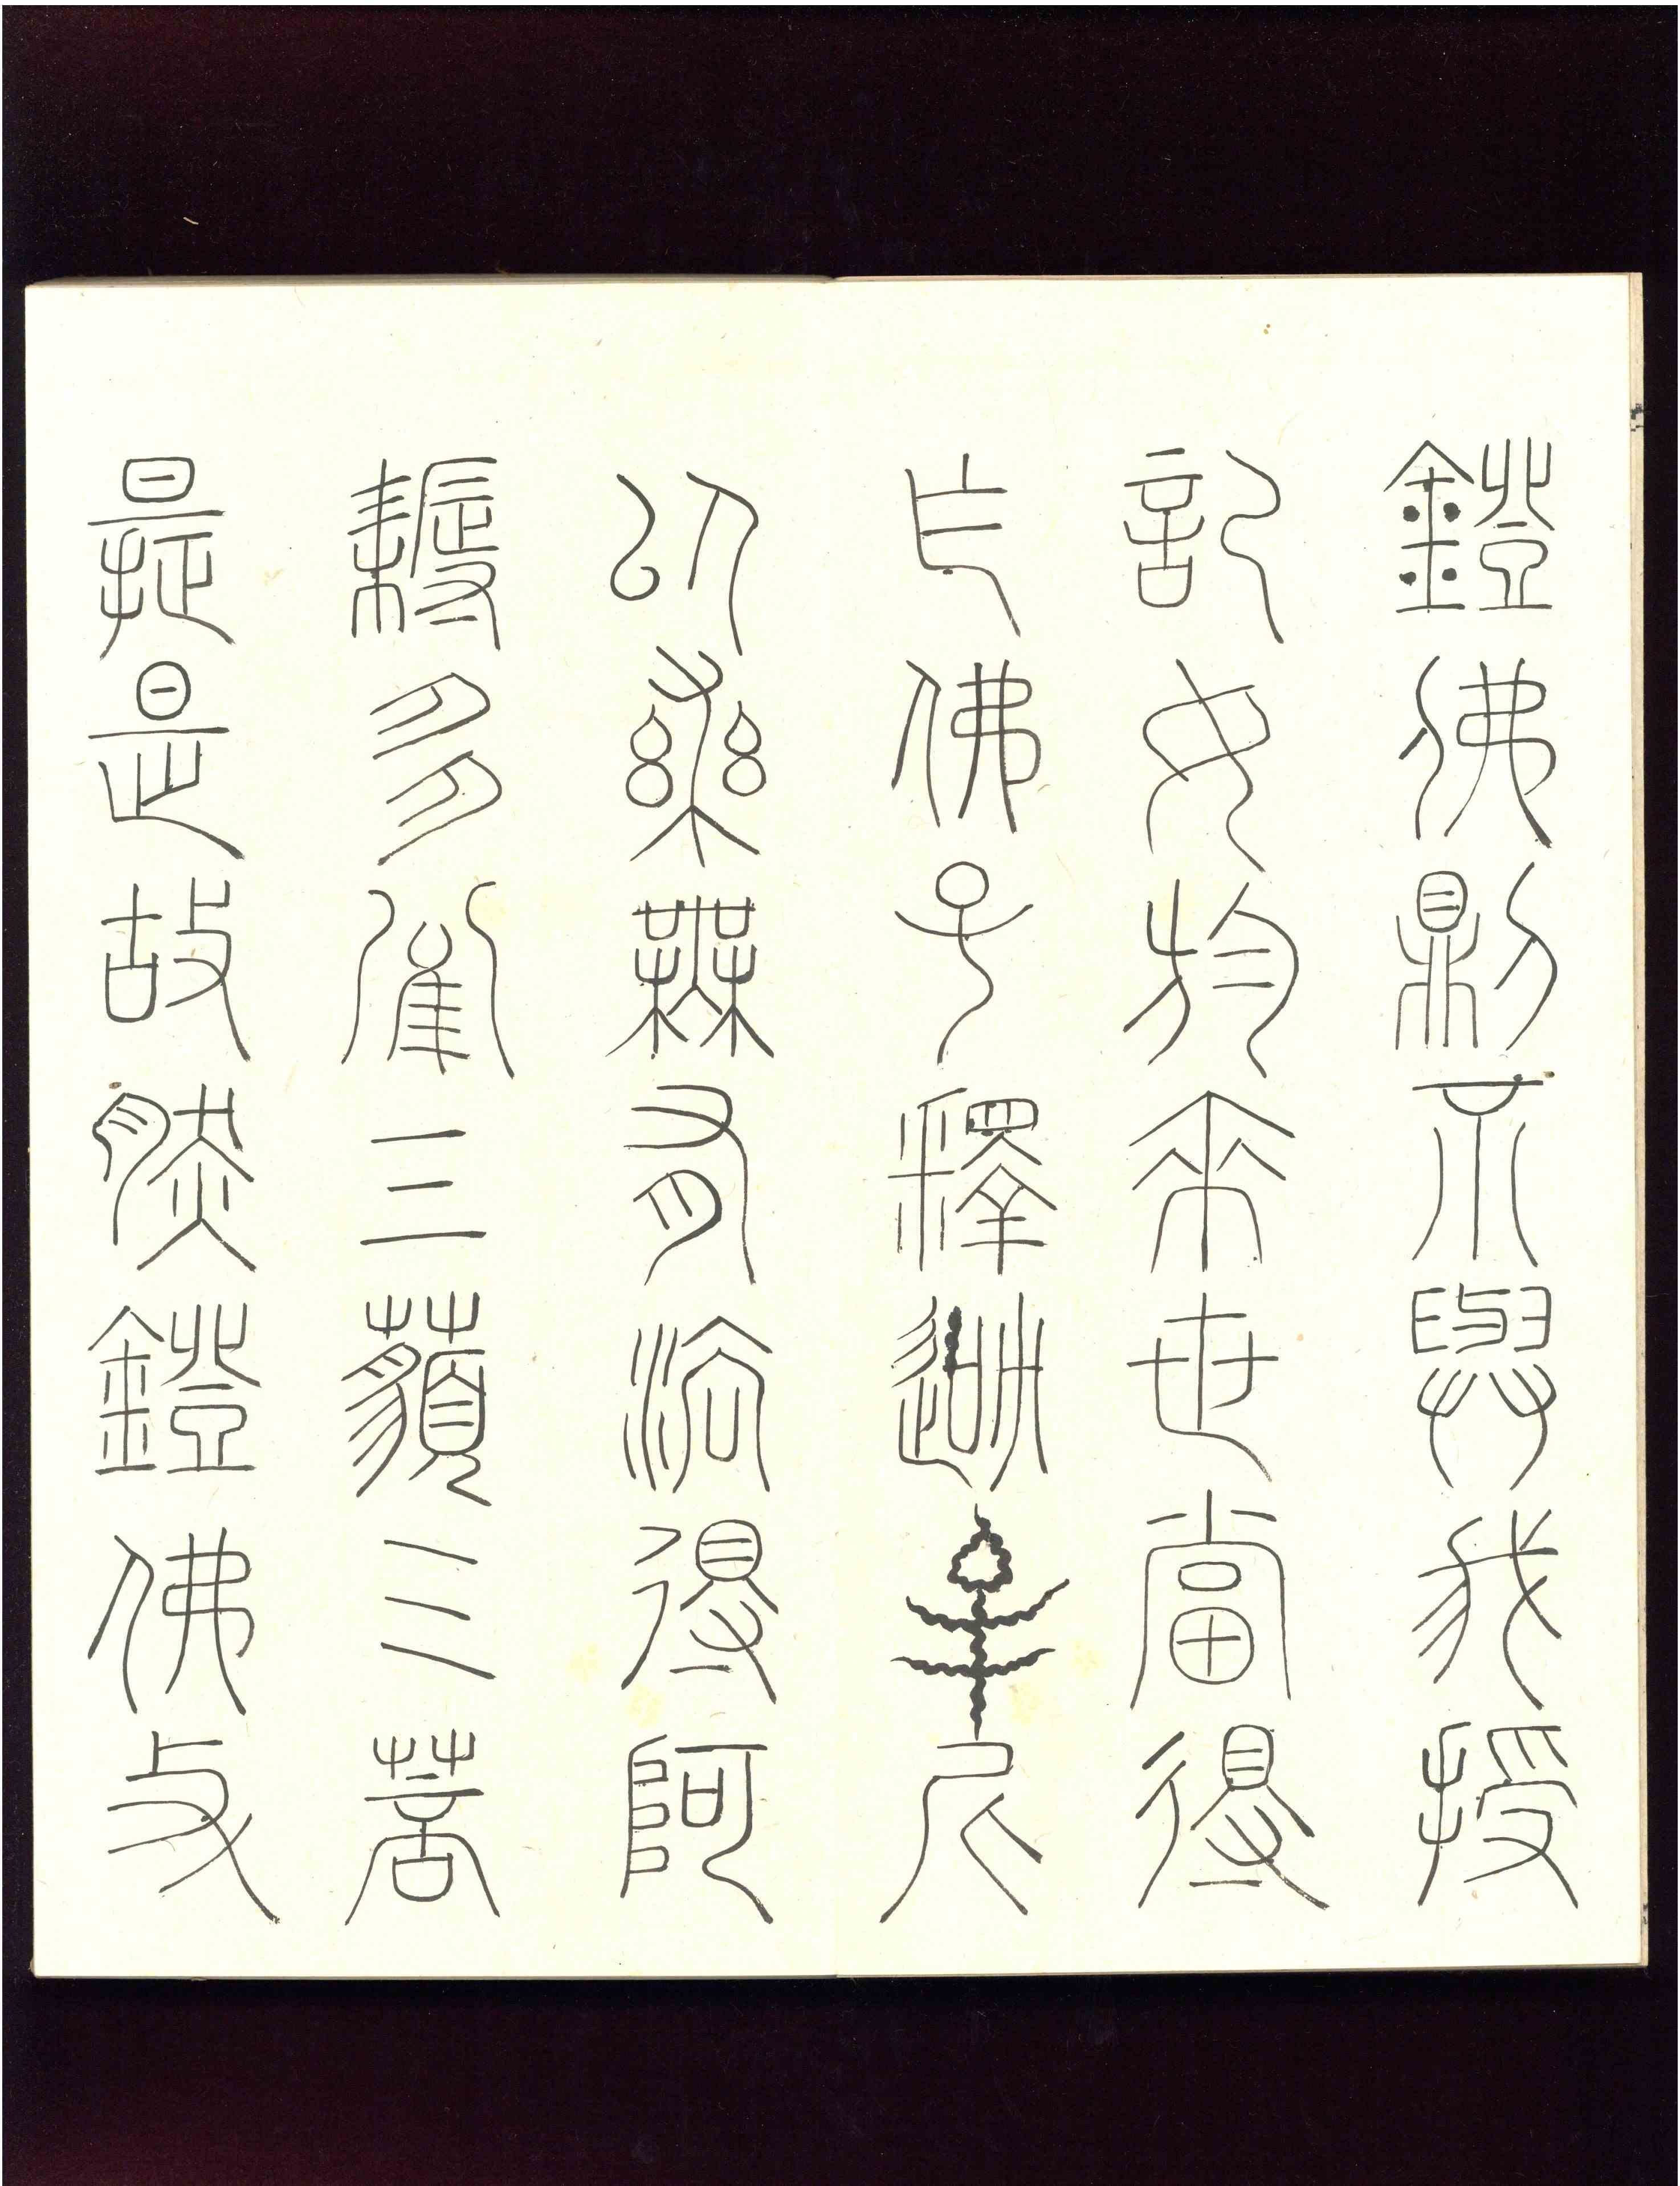 鐙佛則不與我授
記女於來世當得
乍佛号釋迦牟尼
以無有法得阿
耨多羅三藐三菩
提是故然鐙佛与